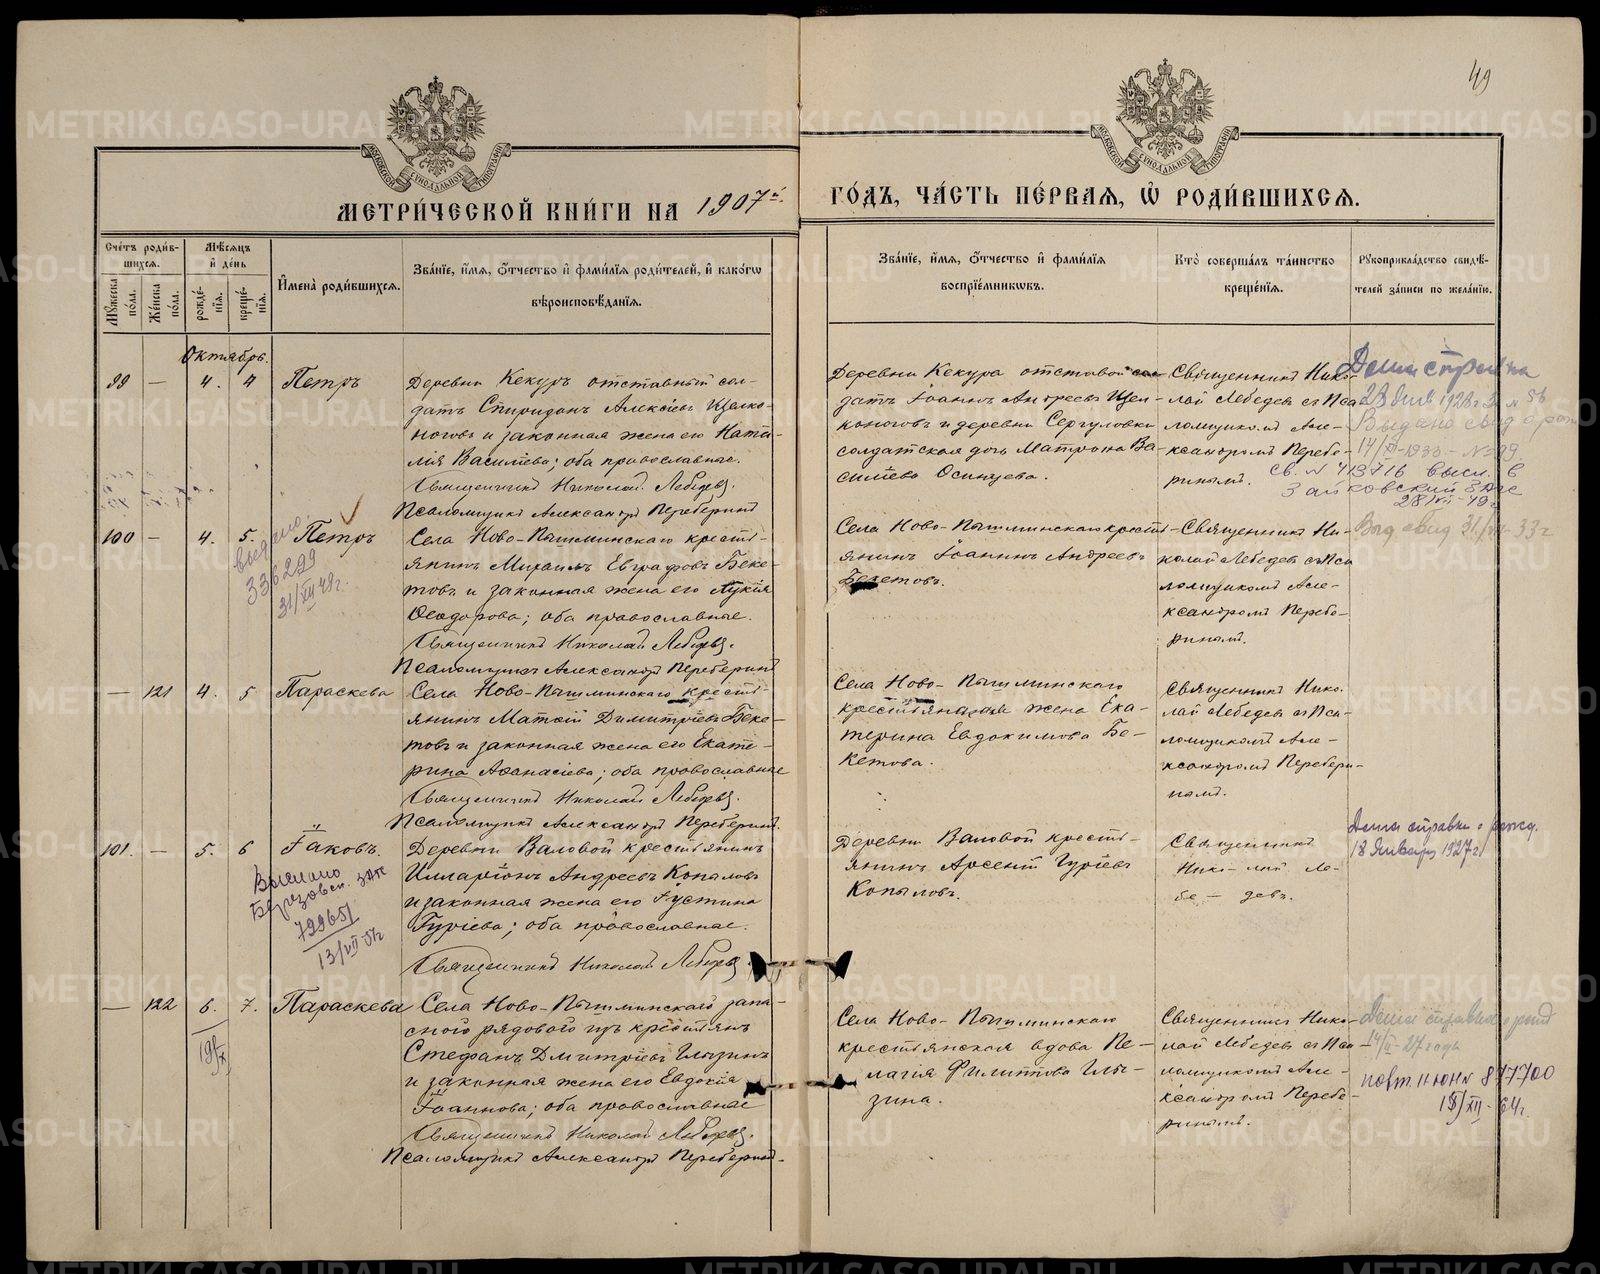 49
МОСКОВСКОЙ СѴНОДАЛЬНОЙ ТИПОГРАФІИ
МОСКОВСКОЙ СѴНОДАЛЬНОЙ ТИПОГРАФІИ
МЕТРИ́ЧЕСКОЙ КНИ́ГИ НА 1907й.
ГО́ДЪ, ЧА́СТЬ ПЕ́РВАЯ, Ѽ РОДИ́ВШИХСЯ.
Сче́тъ роди́в-
шихся.
Мꙋ́жеска по́ла.
Же́нска по́ла.
Мѣ́сяцъ
и҆ де́нь
рожде́-
нїя.
креще́-
нїя.
И҆мена̀ роди́вшихся.
Зва́нїе, и҆́мя, ѻ҆́тчество и҆ фами́лїя роди́телей, и҆ како́гѡ
вѣроисповѣ́данїя.
Зва́нїе, и҆́мя, ѻ҆́тчество и҆ фами́лїя
воспрїе́мникѡвъ.
Кто̀ соверша́лъ та́инство
креще́нїя.
Рꙋкоприкла́дство свидѣ́-
телей за́писи по жела́нїю.
Октябрь.
99 — 4. 4 Петръ
Деревни Кекуръ отставный сол-
датъ Спиридонъ Алексіевъ Щелко-
ноговъ и законная жена его Ната-
лія Василіева; оба православные.
Священникъ Николай Лебедевъ.
Псаломщикъ Александръ Переберинъ
Деревни Кекура отставой сол-
датъ Іоаннъ Андреевъ Щел-
коноговъ и деревни Сергуловки
солдатская дочь Матрона Ва-
силіева Осинцева.
Священникъ Нико-
лай Лебедевъ съ Пса
ломщикомъ Але-
ксандромъ Перебе-
ринымъ.
Дана справка
Выдано свид о рож
14/XI-1933 - № 99
св. № 413716 высл. в
Зайковский ЗАГС
100 — 4. 5. Петръ
выдано.
336299
31/XII 49г.
Села Ново-Пышминскаго крестъ-
янинъ Михаилъ Евграфовъ Беке-
товъ и законная жена его Лукія
Ѳеодорова; оба православные.
Священникъ Николай Лебедевъ.
Псаломщикъ Александръ Переберинъ
Села Ново-Пышминскаго кресть
янинъ Іоаннъ Андреевъ
Бекетовъ.
Священникъ Ни-
колай Лебедевъ съ Пса
ломщикомъ Але-
ксандромъ Перебе-
ринымъ.
Выд свид 31/VII-33г
— 121 4. 5 Параскева
Села Ново-Пышминскаго кресть-
янинъ Матѳій Димитріевъ Беке-
товъ и законная жена его Екате-
рина Аѳанасіева; оба православные
Священникъ Николай Лебедевъ.
Псаломщикъ Александръ Переберинъ
Села Ново-Пышминскаго
крестьянская жена Ека-
терина Евдокимова Бе-
кетова.
Священникъ Нико-
лай Лебедевъ съ Пса-
ломщикомъ Але-
ксандромъ Перебери-
нымъ.
101. — 5. 6 Іаковъ.
Выслано
Березовск. ЗАГС
799651
13/VII-57г
Деревни Валовой крестьянинъ
Илларіонъ Андреевъ Копыловъ
и законная жена его Іустина
Гуріева; оба православные.
Священникъ Николай Лебедевъ
Деревни Валовой кресть-
янинъ Арсеній Гуріевъ
Копыловъ.
Священникъ
Нико-лай Ле-
бе-девъ.
Дана справка о рожд.
18 Января 1927г.
— 122 6. 7. Параскева
Села Ново-Пышминскаго запа-
сного рядового изъ крестьянъ
Стефанъ Дмитріевъ Глызинъ
и законная жена его Евдокія
Іоаннова; оба православные
Священникъ Николай Лебедевъ.
Псаломщикъ Александръ Переберинъ.
Села Ново-Пышминскаго
крестьянская вдова Пе-
лагія Филиппова Глы-
зина.
Священникъ Нико-
лай Лебедевъ съ Пса-
ломщикомъ Але-
ксандромъ Перебе-
ринымъ.
Дана справка о рожд
27 года
повт. II-ЮН № 877700
METRIKI.GASO-URAL.RU